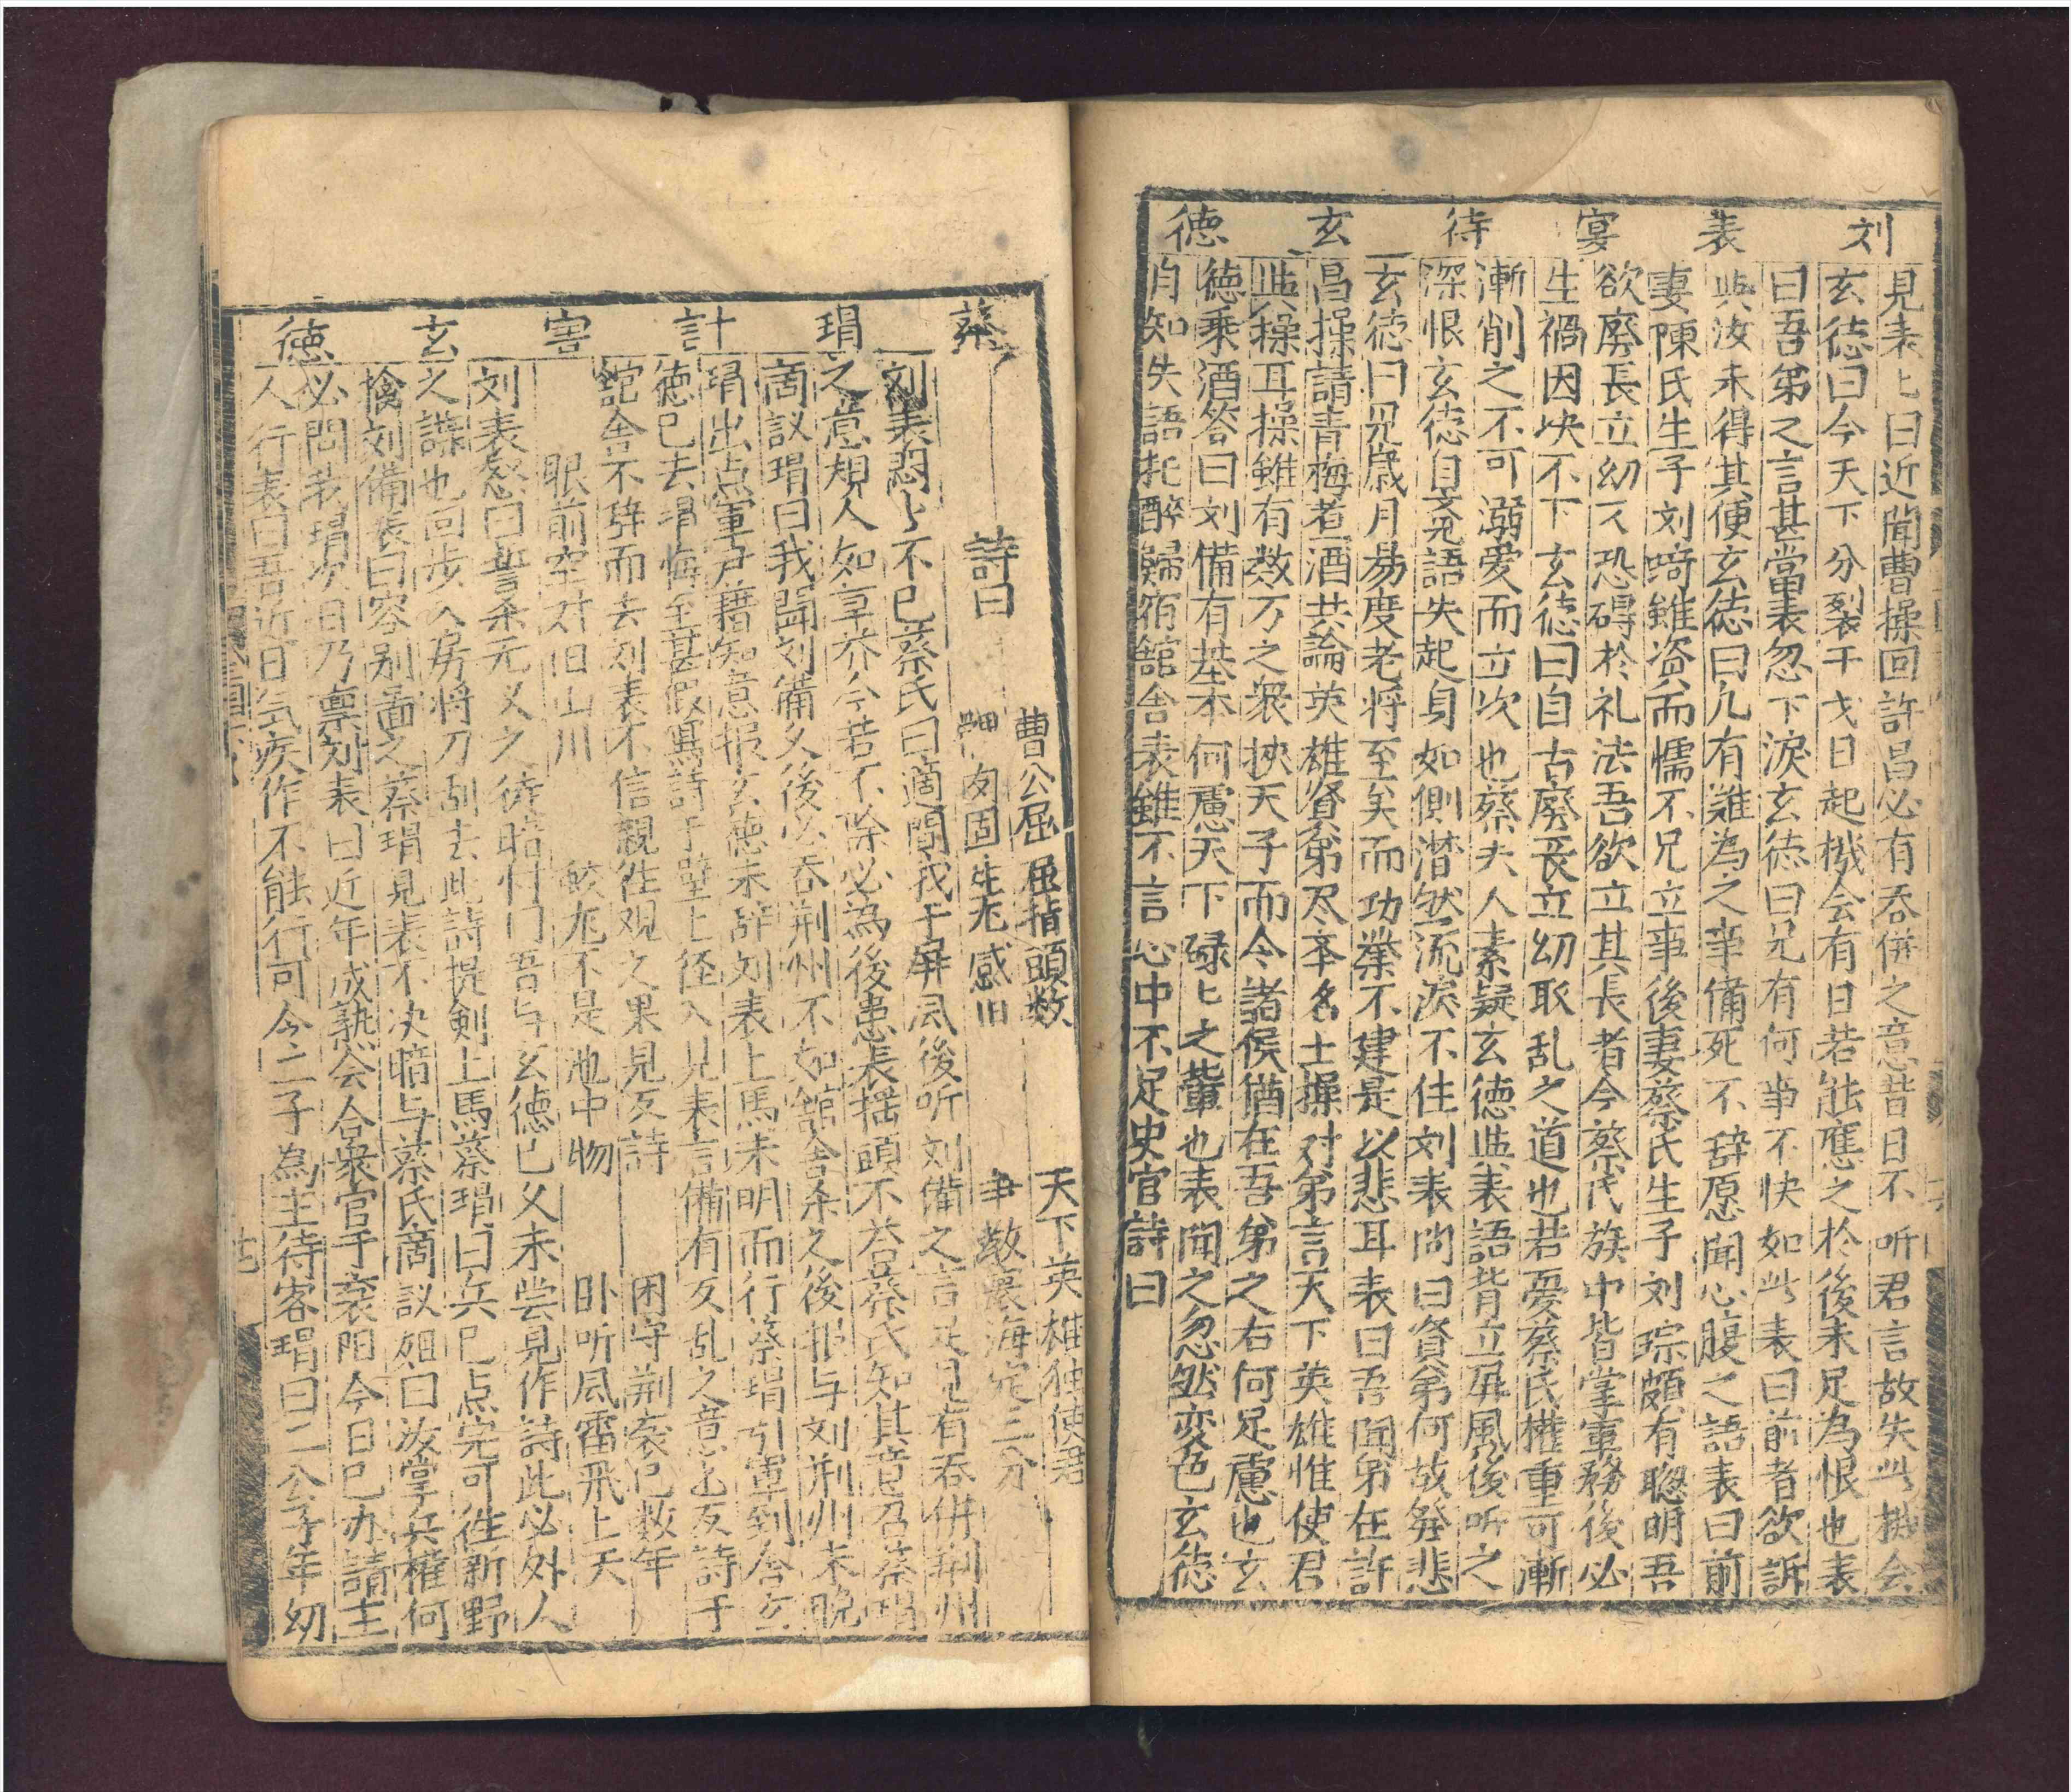 刘表宴待玄德
見表〻曰近聞曹操回許昌必有吞併之意昔日不听君言故失此機会
玄德曰今天下分裂干戈日起機会有日若能應之於後未足為恨也表
曰吾弟之言甚當表忽下淚玄德曰兄有何事不快如此表曰前者欲訴
与汝未得其便玄德曰凢有难為之事備死不辞愿聞心腹之語表曰前
妻陳氏生子刘琦雖資而懦不兄立事後妻蔡氏生子刘琮頗有聡明吾
欲廢長立幼又恐碍於礼法吾欲立其長者今蔡氏族中皆掌軍務後必
生禍因决不下玄德曰自古廢長立幼取乱之道也若憂蔡氏權重可漸
漸削之不可溺爱而立次也蔡夫人素疑玄德与表語背立屏風後听之
深恨玄德自竟語失起身如側潸然流淚不住刘表问曰賢弟何故發悲
玄德曰見歲月易度老将至矣而功業不建是以悲耳表曰吾聞弟在許
昌操請青梅煮酒共論英雄賢弟尽举名士操对弟言天下英雄惟使君
与操耳操雖有数万之衆挾天子而令諸侯猶在吾弟之右何足慮也玄
德乘酒答曰刘備有基本何慮天下碌〻之輩也表聞之忽然变色玄德
自知失語托醉歸宿舘舎表雖不言心中不足史官詩曰
蔡瑁計害玄德
曹公屈指頭数 天下英雄独使君
詩曰
刘表悶〻不已蔡氏曰適間我于屏風後听刘備之言足見有吞併荊州
之意規人如草芥今若不除必為後患表揺頭不荅蔡氏知其意召蔡瑁
商議瑁曰我聞刘備久後必吞荊州不如舘舎杀之後报与刘荊州未晚
瑁出点軍户藉知意报玄德未辞刘表上馬未明而行蔡瑁引軍到舎玄
德已去瑁悔至甚假寫詩于壁上径入見表言備有反乱之意出反詩于
舘舎不辞而去刘表不信親徃观之果見反詩 困守荊襄已数年
眼前空对旧山川 蛟龙不是池中物 卧听風雷飛上天
刘表怒曰誓杀无义之徒暗忖门吾与玄德已义未尝見作詩此必外人
之謀也回步入房将刀刮去此詩提剣上馬蔡瑁曰兵已点完可徃新野
擒刘備表曰容别啚之蔡瑁見表不决暗与蔡氏商議姐曰汝掌兵權何
必問我瑁次日乃禀刘表曰近年成熟会合衆官于襄阳今日已办請主
人行表曰吾近日気疾作不能行可令二子為主待客瑁曰二公子年幼